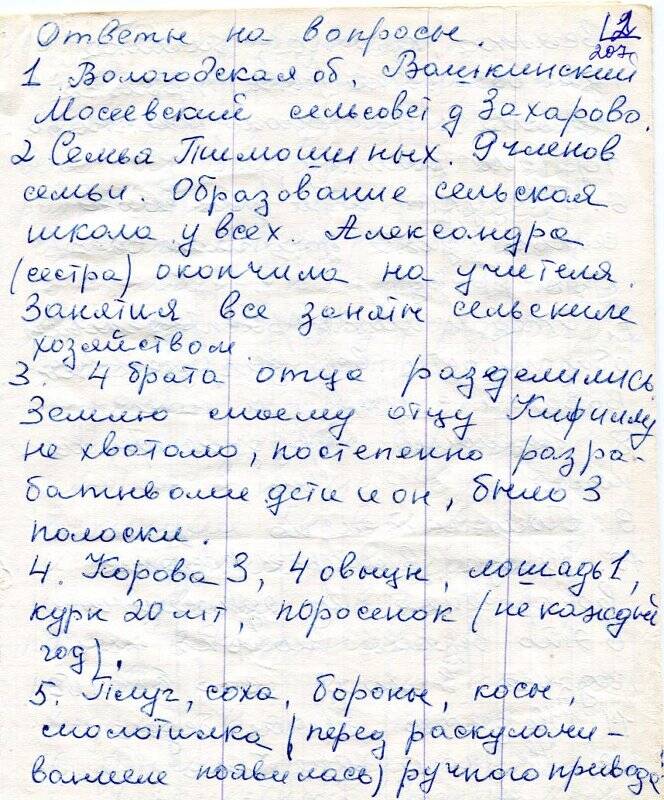 Ответы на вопросы.
12
207
1 Вологодская об, Вашкинский
Мосеевский сельсовет д Захарово.
2 Семья Тимошиных. 9 членов
семьи. Образование сельская
школа у всех. Александра
(сестра) окончила на учителя.
Занятия все заняты сельским
хозяйством
3. 4 брата отца разделились
Землю моему отцу Кириллу
не хватало, постепенно разра-
батывали дети и он, было 3
полоски.
4. Корова 3, 4 овцы, лошадь 1,
куры 20 шт, поросенок (не каждый
год).
5. Плуг, соха, бороны, косы,
молотилка (перед раскулачи-
ванием появилась) ручного привода